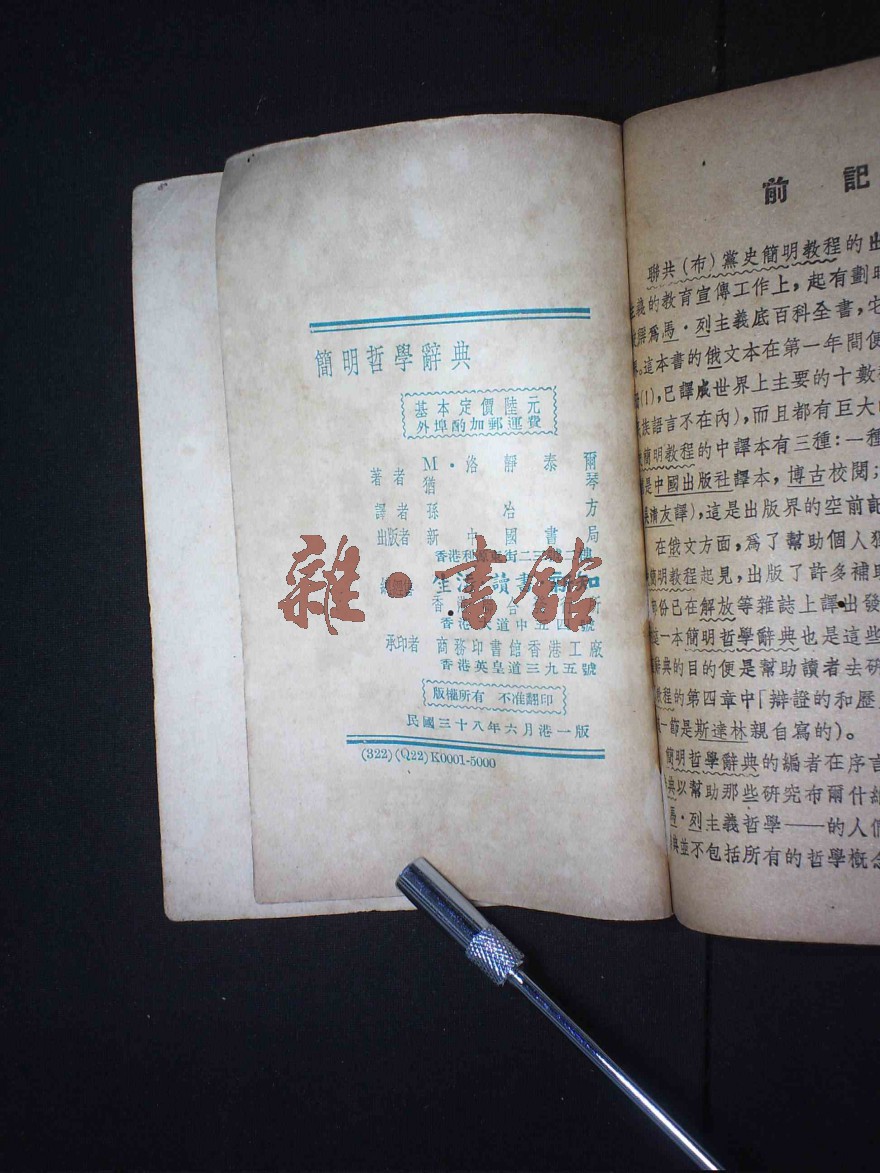 簡明哲學辭典
基本定價陸元
外埠酌加郵運費
著者 M·洛靜泰爾
猶琴
譯者 孫冶方
出版者 新中國書局
香港利源東街二三號二樓
生活 讀書 新知
香港
香港大道中五四號
承印者 商務印書館香港工廠
香港英皇道三九五號
版權所有 不准翻印
民國三十八年六月港一版
(322)(Q22)K0001-5000
雜·書館
前記
聯共(布)黨史簡明教程的出
義的教育宣傳工作上,起有劃時
譔爲馬·列主義底百科全書,它
。這本書的俄文本在第一年間便
(1),已譯成世界上主要的十數
族語言不在內),而且都有巨大
簡明教程的中譯本有三種:一種
是中國出版社譯本,博古校閱;
清友譯),這是出版界的空前記
在俄文方面,爲了幫助個人
簡明教程起見,出版了許多補助
份已在解放等雜誌上譯出發
這一本簡明哲學辭典也是這些
辭典的目的便是幫助讀者去研
教程的第四章中「辯證的和歷
一節是斯達林親自寫的)。
簡明哲學辭典的編者在序言
典以幫助那些研究布爾什維
馬·列主義哲學——的人們
典並不包括所有的哲學概念